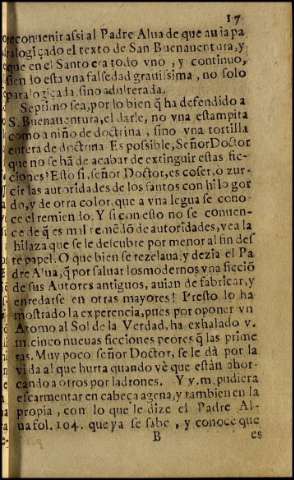 17
reconuenir assi al Padre Alua de que auia pa
ralogiçado el texto de San Buenauentura, y
que en el Santo era todo vno, y continuo,
siendo esta vna falsedad grauissima, no solo
paralogicada, sino adulterada.
Sepuì no sea, por lo bien q̃ ha defendido a
S. Buenauentura, el darle, no vna estampita
como a niño de doctrina, sino vna tortilla
entera de doctrina. Es possible, Señor Doctor
que no se hã de acabar de extinguir estas fic-
ciones! Esto si, señor Doctor, es coser, o zur-
cir las autoridades de los santos con hilo gor
do, y de otra color, que a vna legua se cono-
ce el remiendo. Y si con esto no se conuen-
ce de q̃ es mil remẽdõ de autoridades, vea la
hilaza que se le descubre por menor al fin des
te papel. O que bien se rezelaua, y dezia el Pa
dre Alua, q̃ por saluar los modernos vna ficciõ
de sus Autores antiguos, auian de fabricar, y
enredarse en otras mayores! Presto lo ha
mostrado la experencia, pues por oponer vn
Atomo al Sol de la Verdad, ha exhalado v.
m. cinco nueuas ficciones peores q̃ las prime
ras. Muy poco señor Doctor, se le dà por la
vida al que hurta quando vè que estàn ahor-
cando a otros por ladrones. Y v. m. pudiera
escarmentar en cabeça agena, y tambien en la
propia, con lo que le dize el Padre Al-
ua fol. 104. que ya se sabe, y conoce que
B es